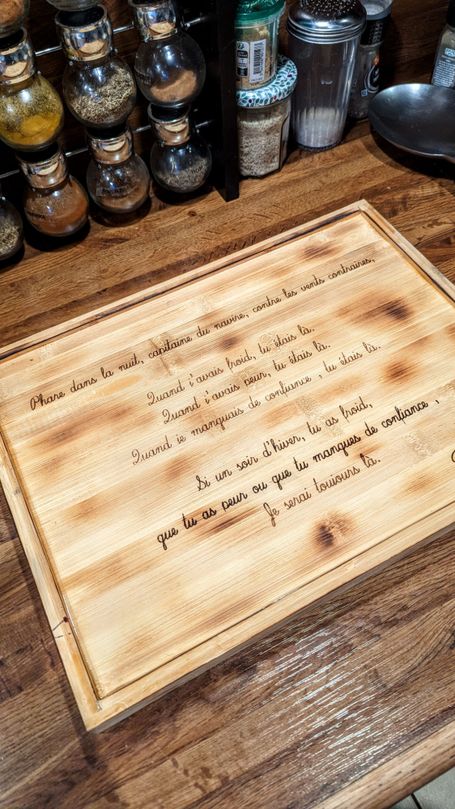 Phare dans la nuit, capitaine du navire, contre les vents contraires,
Quand i'avais froid, tu étais là.
Quand i'avais peur, tu étais là.
Quand ie manquais de confiance , tu étais là.
Si un soir d'hiver, tu as froid,
que tu as peur ou que tu manques de confiance ,
Je serai touiours là.